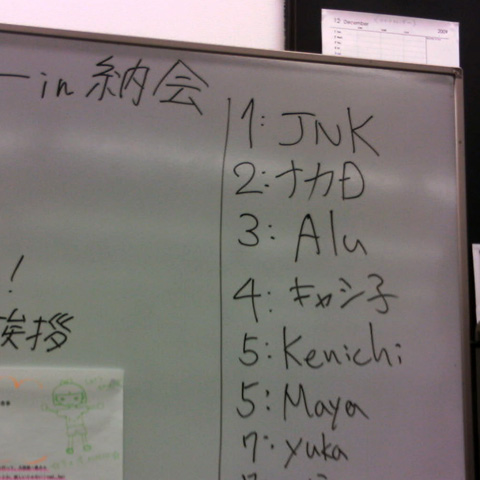 12 December
2009
ー in 納会
1: JNK
2: ナカD
3: Alu
4: キャシ子
5: Kenichi
5: Maya
7: yuka
!
挨拶